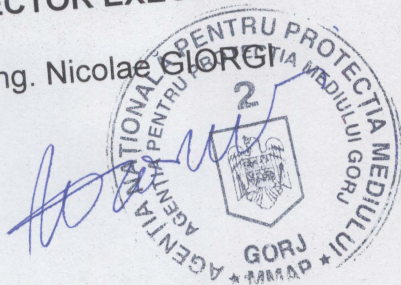 ECTOR EXEC
ng. Nicolae GIORGI
AGENȚIA NAȚIONALĂ PENTRU PROTECȚIA MEDIULUI
AGENȚIA PENTRU PROTECȚIA MEDIULUI GORJ
2
GORJ
* MMAP *